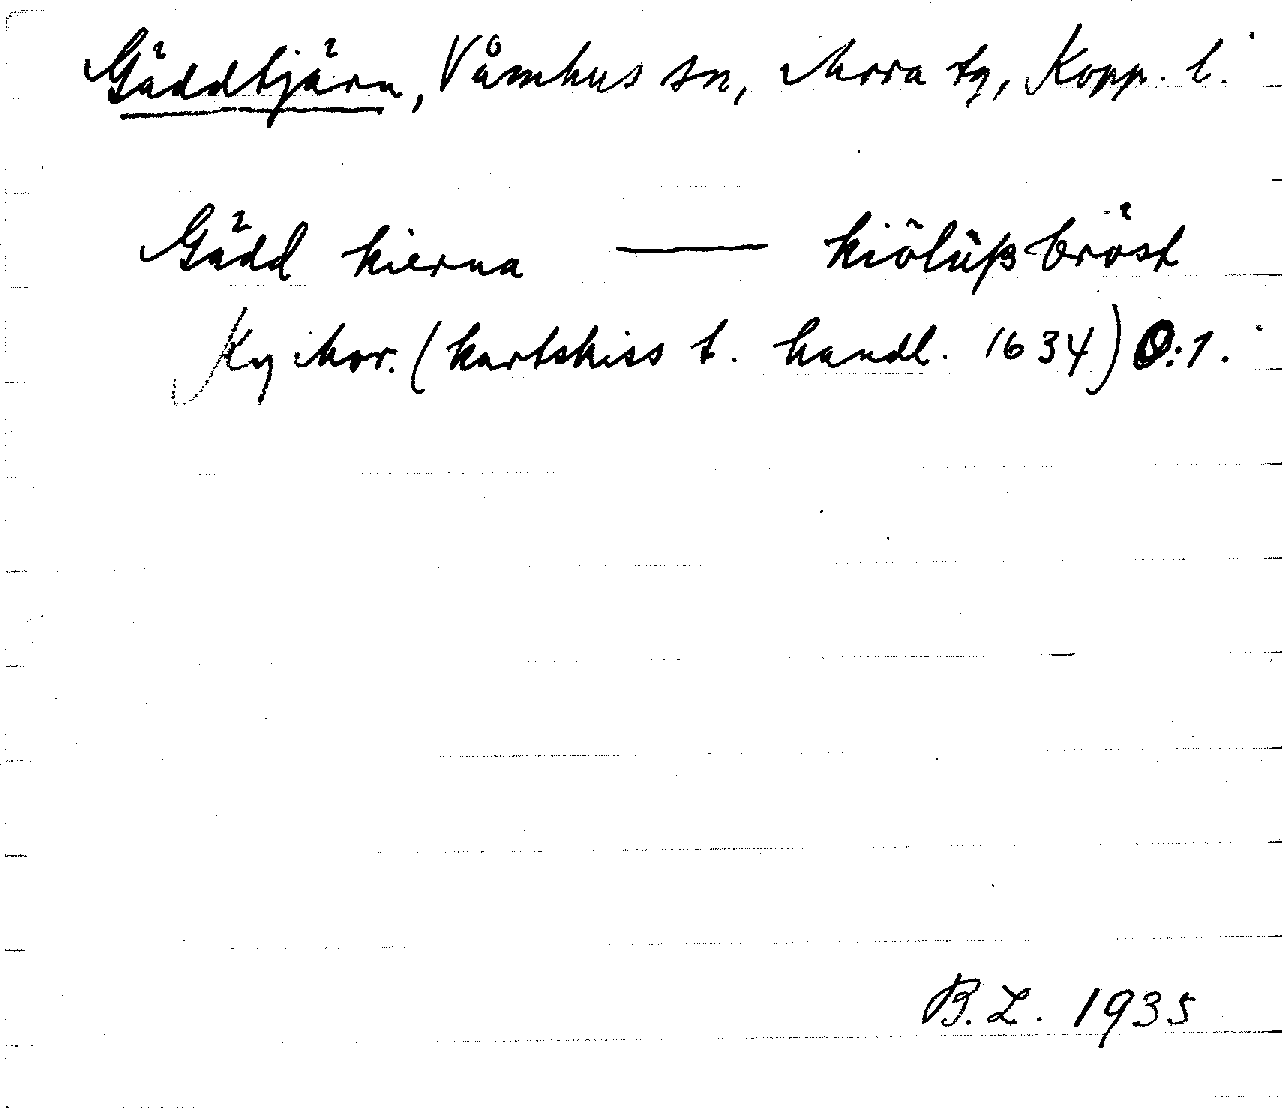 Gäddtjärn, Våmhus sn, Mora tg, Kopp. l.
Gädd kierna — kiölüßbröst
Ky Mor. (kartskiss t. handl. 1634) O:1.
B.L. 1935